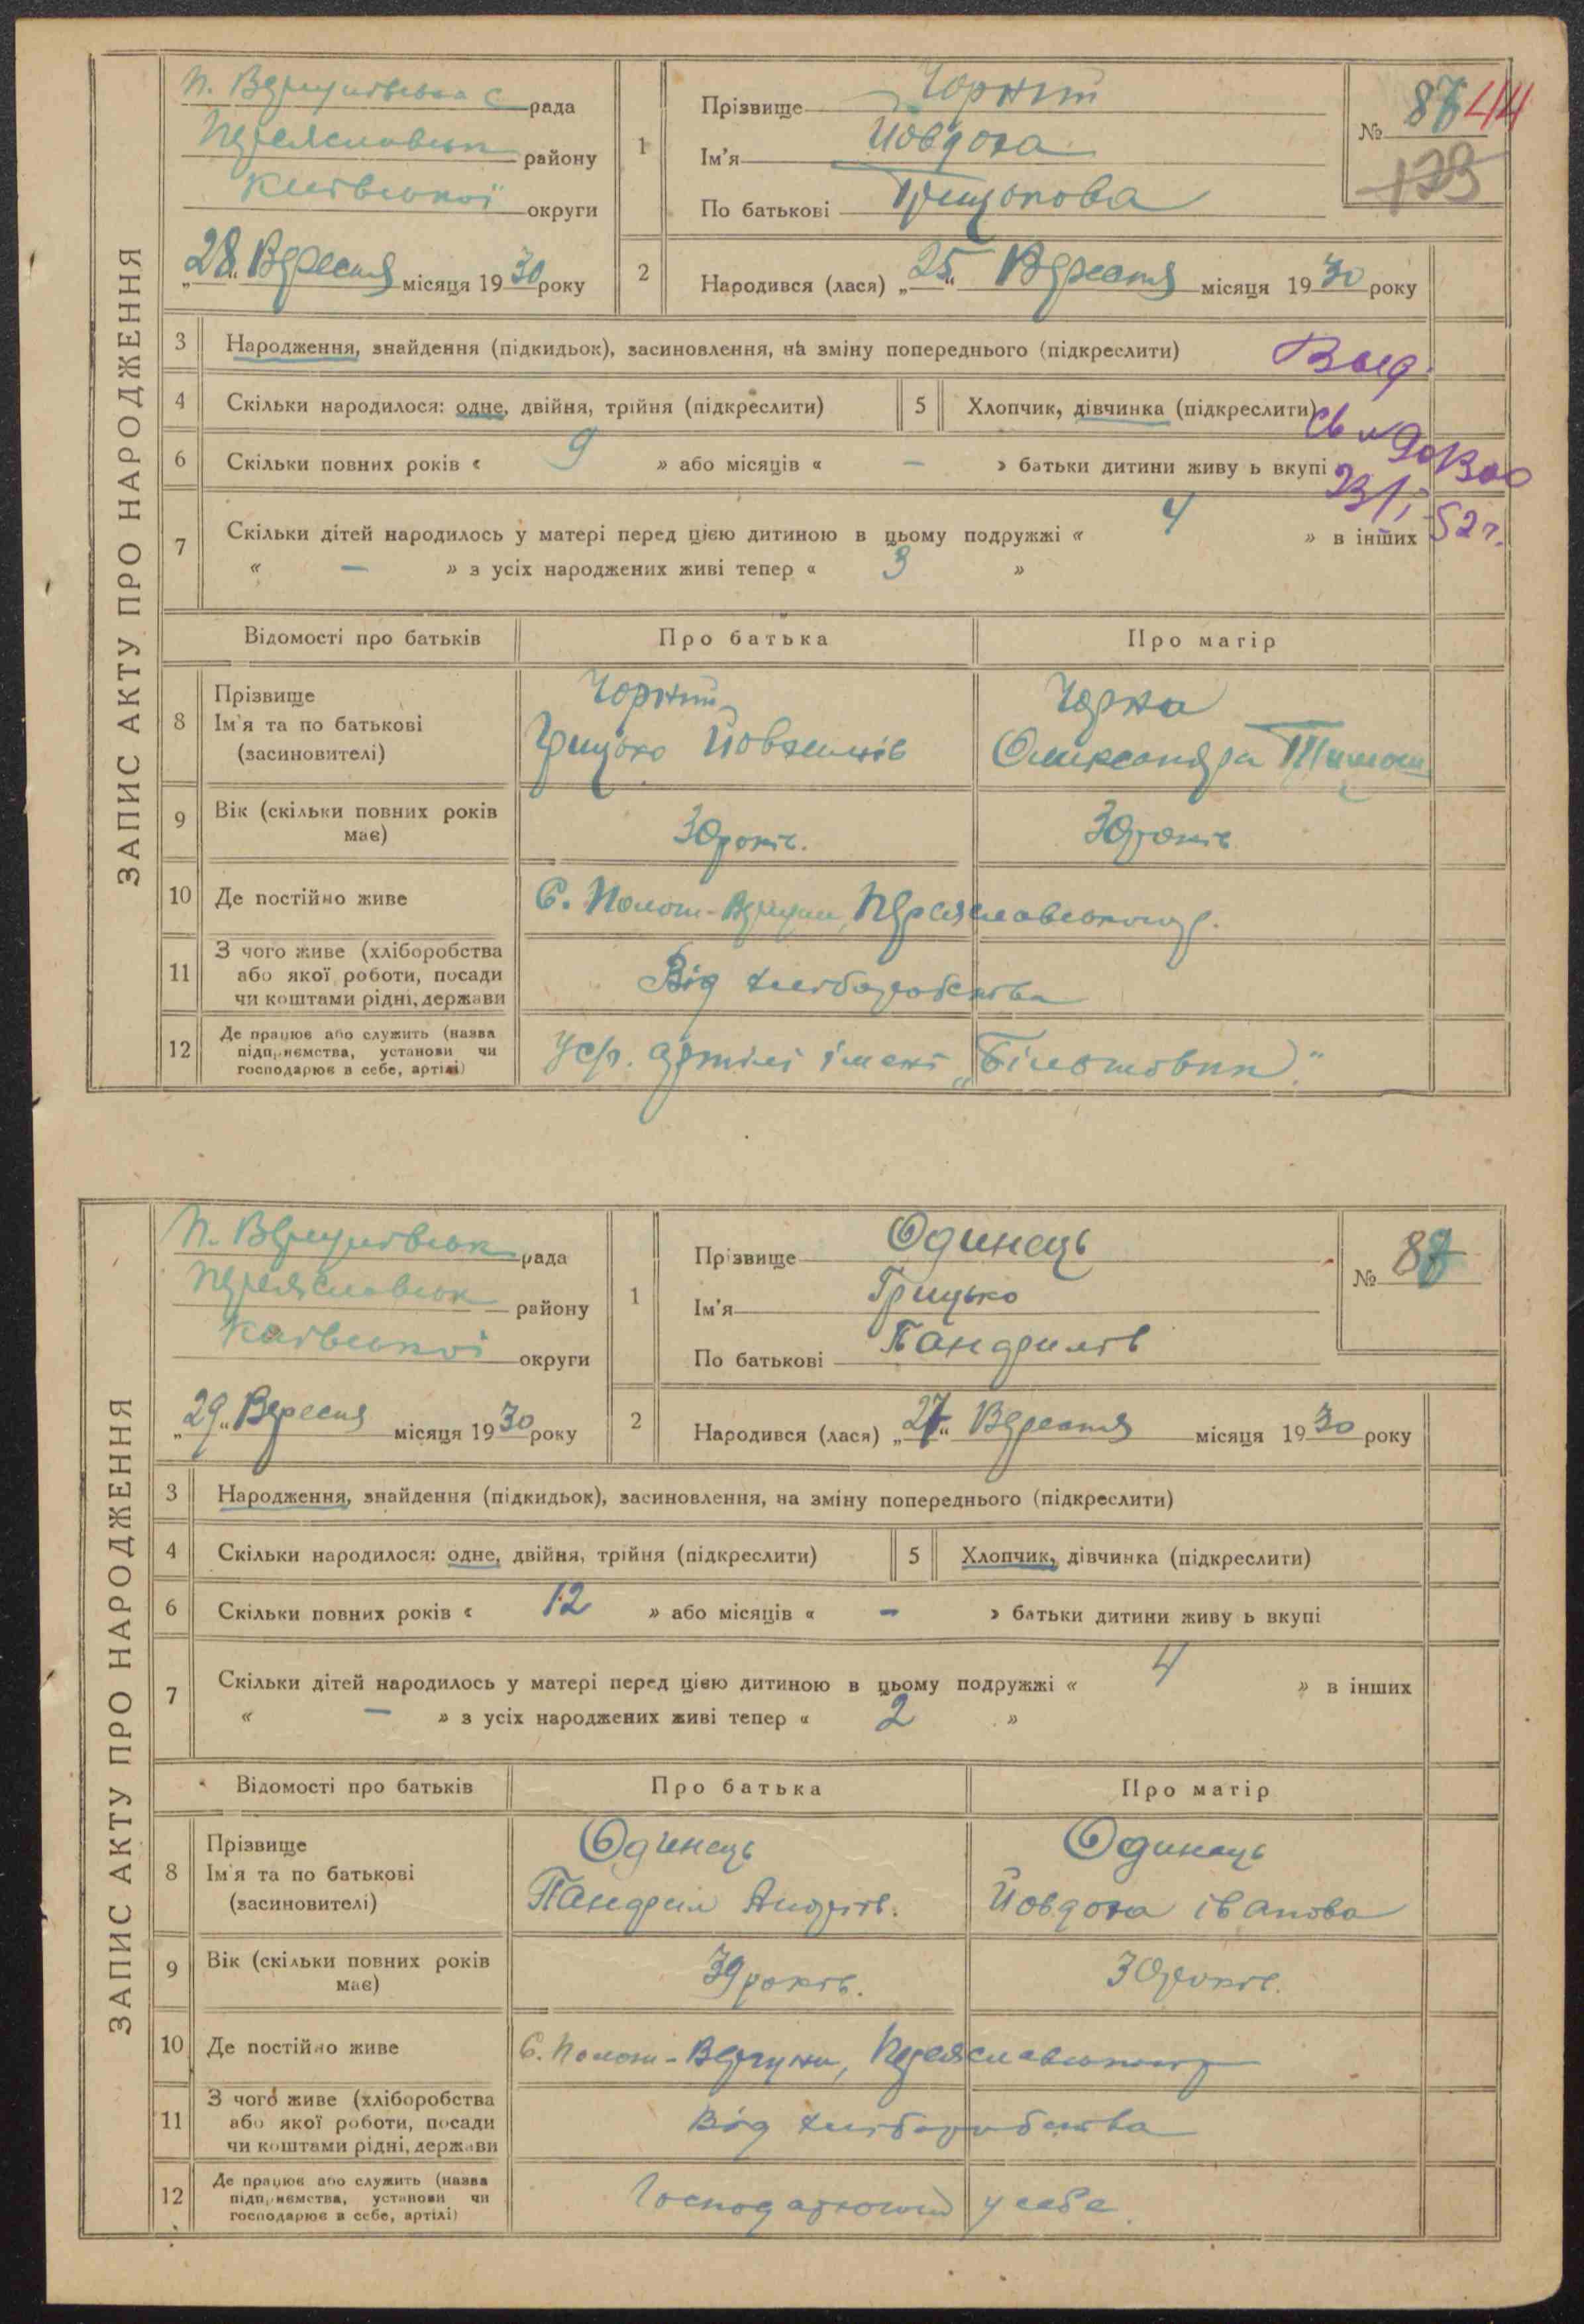 ЗАПИС АКТУ ПРО НАРОДЖЕННЯ
П. Вергунівська с рада
Переяславськ району
Київської округи
„28“ Вересня місяця 1930 року
1
Прізвище Чорний
Ім'я Йовдоха
По батькові Грицькова
№ 87 44
173
2
Народився (лася) „25“ Вересня місяця 1930 року
3 Народження, знайдення (підкидьок), засиновлення, на зміну попереднього (підкреслити)
Выд.
4 Скільки народилося: одне, двійня, трійня (підкреслити)
5 Хлопчик, дівчинка (підкреслити)
6 Скільки повних років « 9 » або місяців « – » батьки дитини живу ь вкупі
23/I-52 г.
7 Скільки дітей народилось у матері перед цією дитиною в цьому подружжі « 4 » в інших
« – » з усіх народжених живі тепер « 3 »
Відомості про батьків Про батька Про матір
8 Прізвище
Ім'я та по батькові
(засиновителі)
Чорний
Грицько Йовхимів
Чорна
Олександра Тимош
9 Вік (скільки повних років має)
30 років.
30 років
10 Де постійно живе
С. Полог-Вергуни, Переяславського р.
11 З чого живе (хліборобства
або якої роботи, посади
чи коштами рідні, держави
Від хліборобства
12 Де працює або служить (назва
підприємства, установи чи
господарює в себе, артілі)
Усіл. артілі імені „Більшовик“.
ЗАПИС АКТУ ПРО НАРОДЖЕННЯ
П. Вергунівськ рада
Переяславськ району
Київської округи
„29“ Вересня місяця 1930 року
1
Прізвище Одинець
Ім'я Грицько
По батькові Пандрилів
№ 88
2
Народився (лася) „27“ Вересня місяця 1930 року
3 Народження, знайдення (підкидьок), засиновлення, на зміну попереднього (підкреслити)
4 Скільки народилося: одне, двійня, трійня (підкреслити)
5 Хлопчик, дівчинка (підкреслити)
6 Скільки повних років « 12 » або місяців « – » батьки дитини живу ь вкупі
7 Скільки дітей народилось у матері перед цією дитиною в цьому подружжі « 4 » в інших
« – » з усіх народжених живі тепер « 2 »
Відомості про батьків Про батька Про матір
8 Прізвище
Ім'я та по батькові
(засиновителі)
Одинець
Пандрил Андріїв.
Одинець
Йовдоха Іванова
9 Вік (скільки повних років має)
39 років.
30 років.
10 Де постійно живе
С. Полог-Вергуни, Переяславського р
11 З чого живе (хліборобства
або якої роботи, посади
чи коштами рідні, держави
Від хліборобства
12 Де працює або служить (назва
підприємства, установи чи
господарює в себе, артілі)
Господарюють у себе.